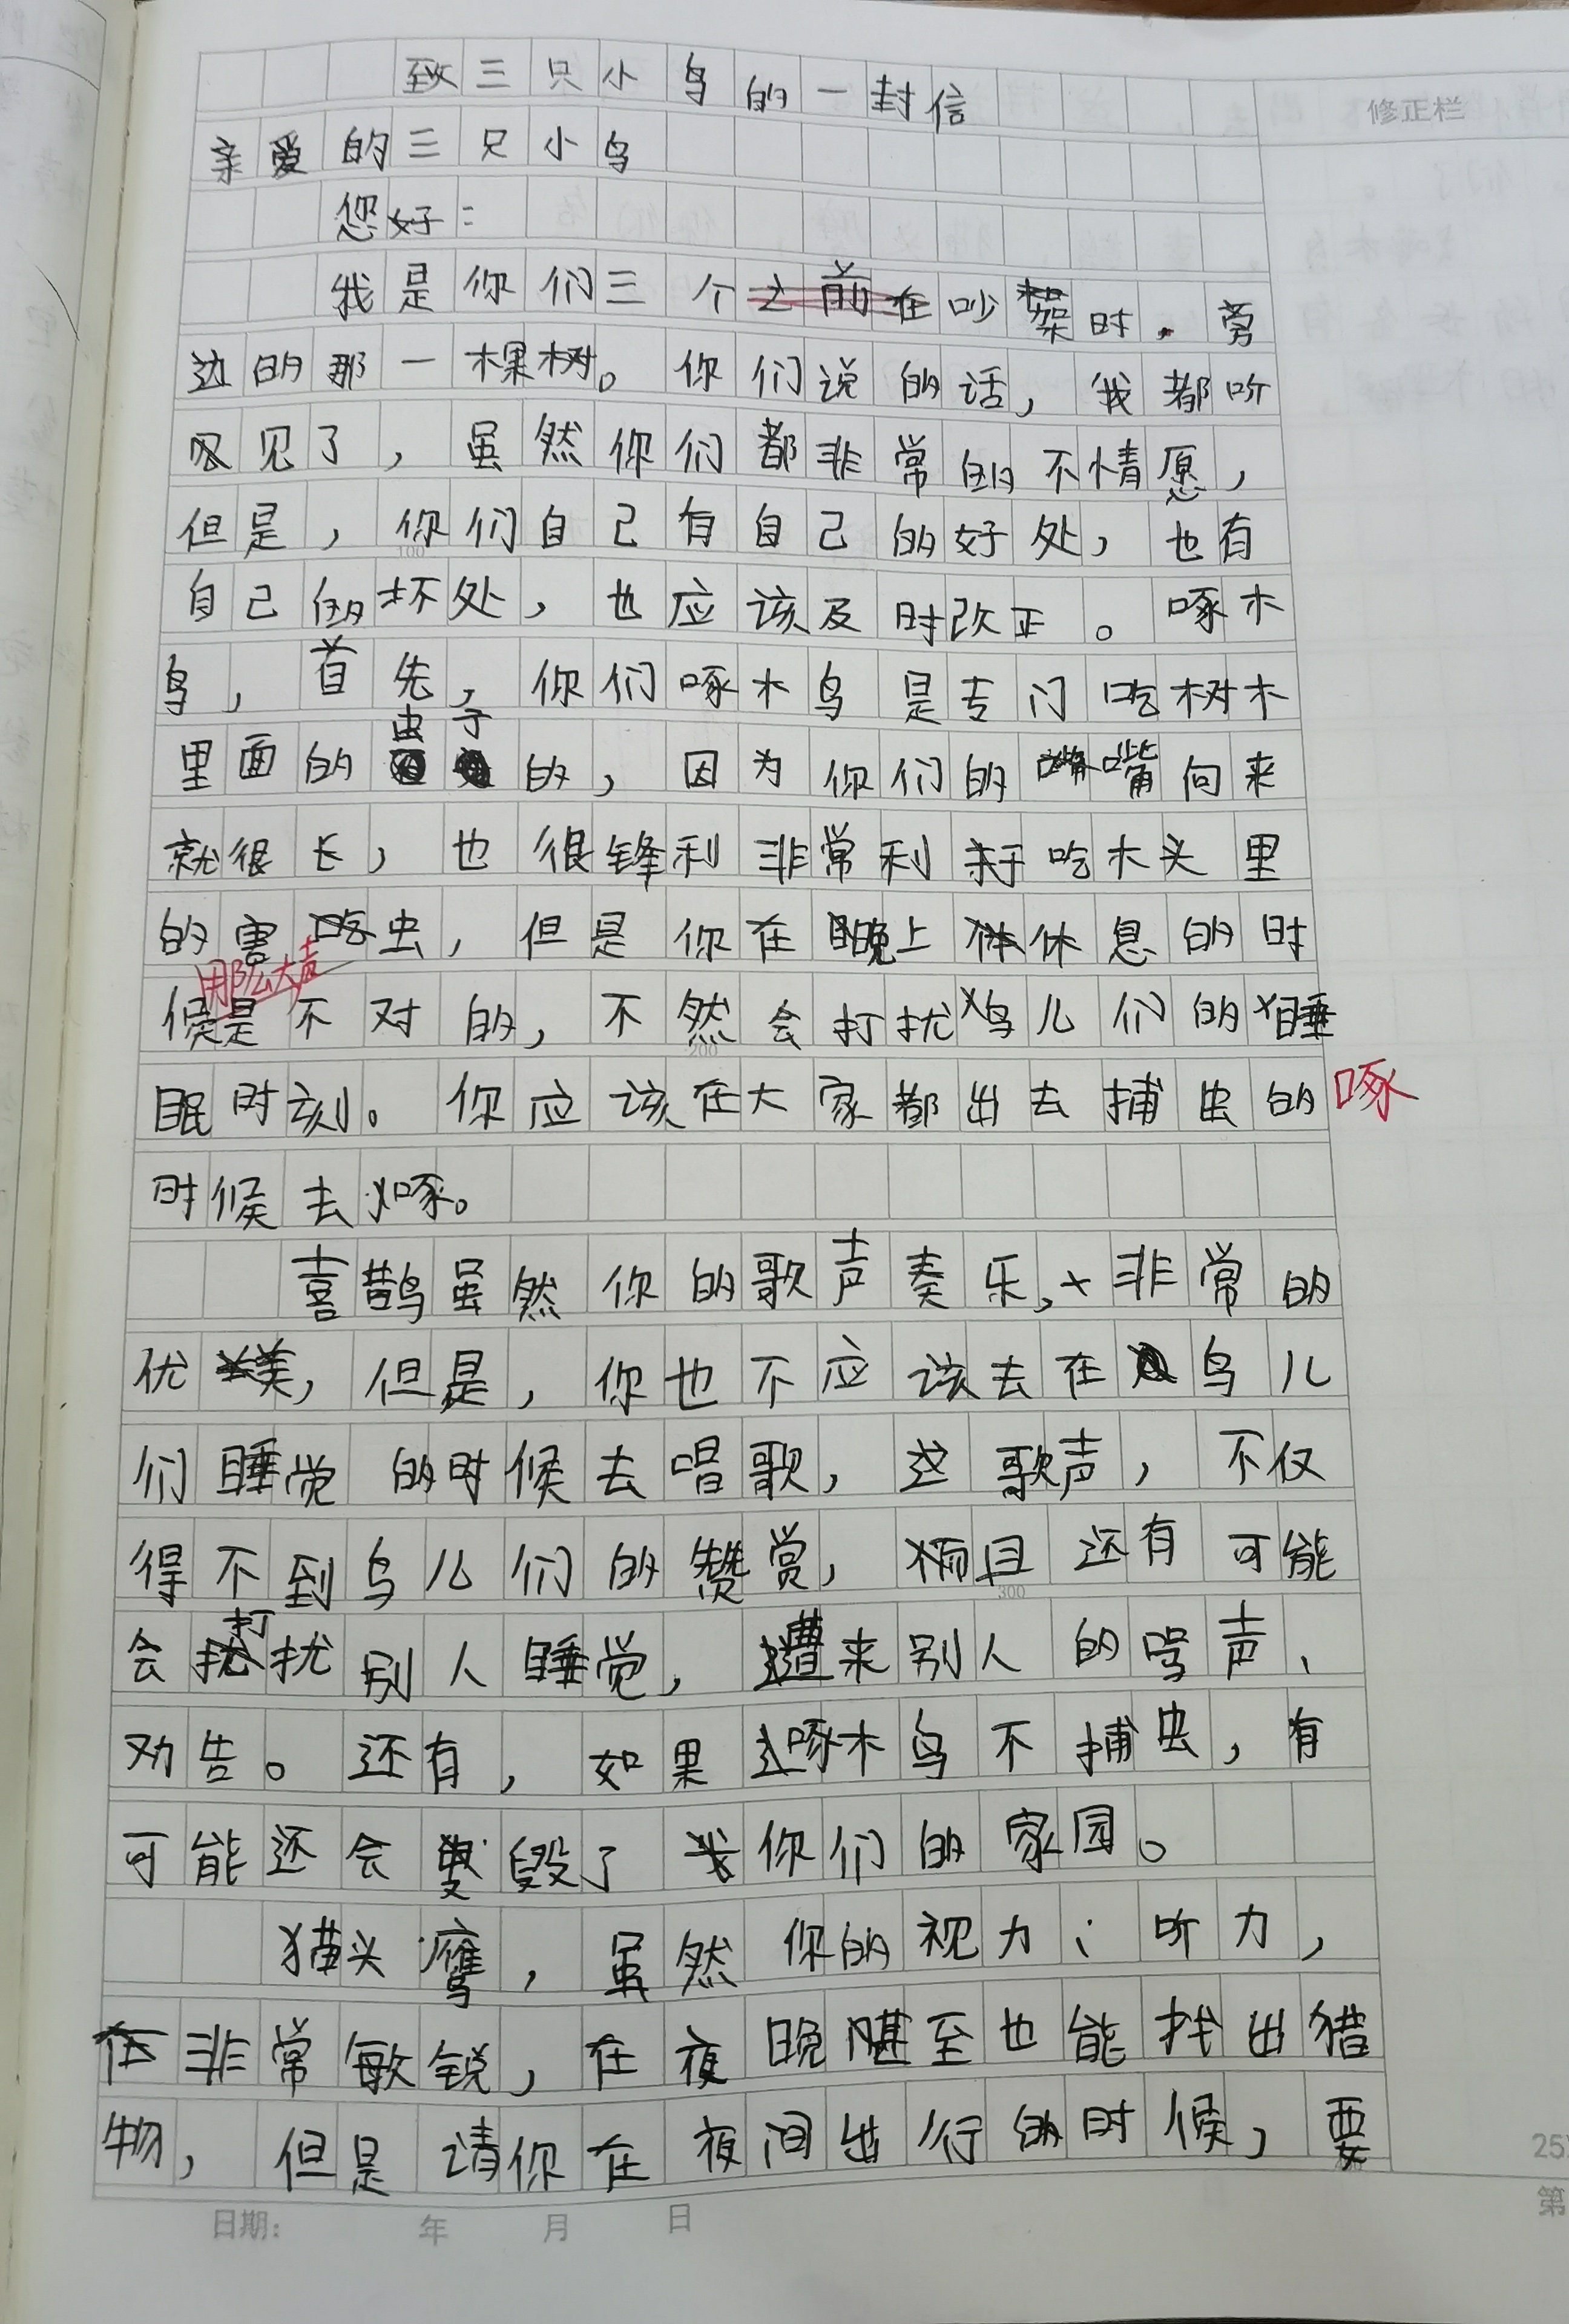 致三只小鸟的一封信
修正栏
亲爱的三只小鸟
您好:
我是你们三个之前在吵架时,旁
边的那一棵树。你们说的话,我都听
见了,虽然你们都非常的不情愿,
但是,你们自己有自己的好处,也有
100
自己的坏处,也应该及时改正。啄木
鸟,首先,你们啄木鸟是专门吃树木
虫子
里面的的,因为你们的嘴向来
就很长,也很锋利非常利于吃木头里
的害虫,但是你在晚上休息的时
用那么大声
候是不对的,不然会打扰鸟儿们的睡
200
眠时刻。你应该在大家都出去捕虫的
啄
时候去啄。
喜鹊虽然你的歌声奏乐,非常的
优美,但是,你也不应该去在鸟儿
们睡觉的时候去唱歌,这歌声,不仅
得不到鸟儿们的赞赏,而且还有可能
300
会打扰别人睡觉,遭来别人的骂声、
劝告。还有,如果啄木鸟不捕虫,有
可能还会毁了你们的家园。
猫头鹰,虽然你的视力;听力,
非常敏锐,在夜晚甚至也能找出猎
物,但是请你在夜间出行的时候,要
日期: 年 月 日
25
第